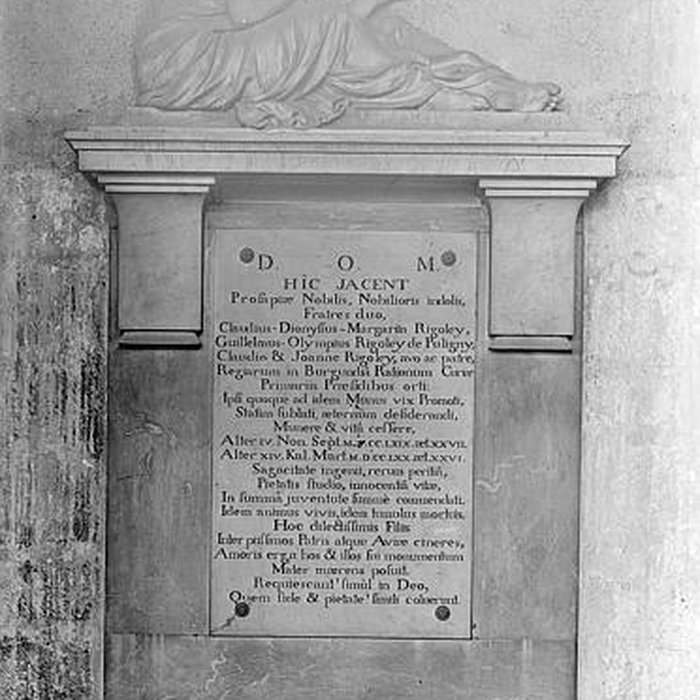 D. O. M.
HIC JACENT
Prosapiæ Nobilis, Nobilioris indolis,
Fratres duo,
Claudius-Dionysius-Margarita Rigoley,
Guillelmus-Olympius Rigoley de Puligny,
Claudio & Joanne Rigoley, avo ac patre,
Regiarum in Burgundiâ Rationum Curiæ
Primariis Præsidibus orti.
Ipsi quoque ad idem Munus vix Promoti,
Statim sublati, æternùm desiderandi,
Munere & vitâ cessere,
Alter IV. Non. Sept. M.D.CC.LXIX. æt.XXVII.
Alter XIV. Kal. Mart. M.D.CC.LXX. æt.XXVI.
Sagacitate ingenii, rerum peritiâ,
Pietatis studio, innocentiâ vitæ,
In summâ juventute summè commendati.
Idem animus vivis, idem tumulus mortuis.
Hoc dilectissimis Filiis
Inter piissimos Patris atque Aviæ cineres,
Amoris erga hos & illos sui monumentum
Mater mœrens posuit.
Requiescant simùl in Deo,
Quem fide & pietate simili coluerunt.